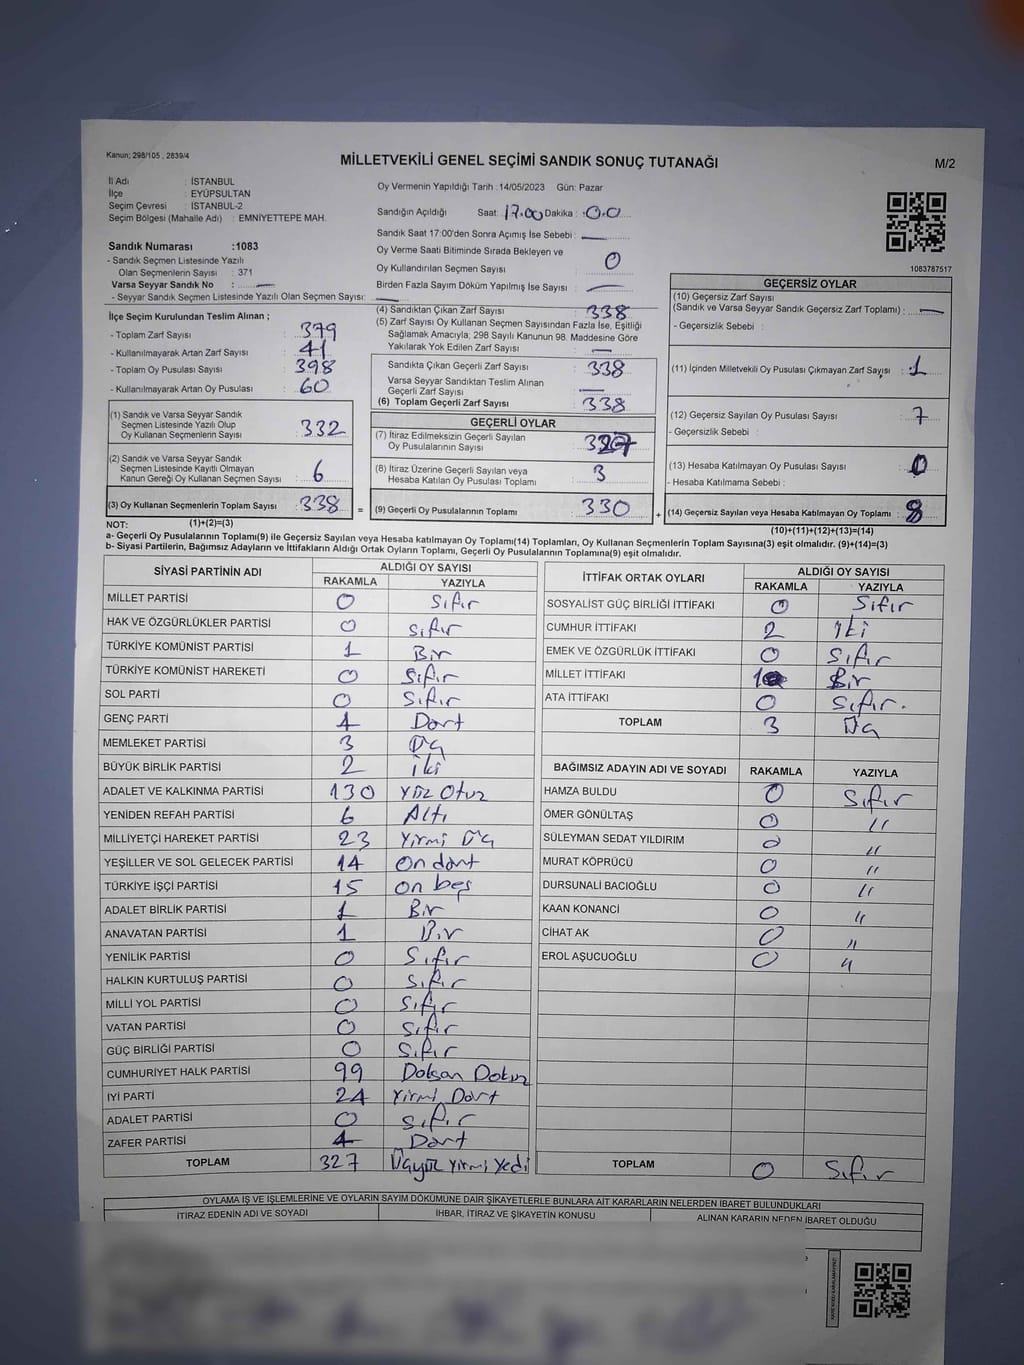 Kanun; 298/105 , 2839/4
MİLLETVEKİLİ GENEL SEÇİMİ SANDIK SONUÇ TUTANAĞI
M/2
İl Adı : İSTANBUL
İlçe : EYÜPSULTAN
Seçim Çevresi : İSTANBUL-2
Seçim Bölgesi (Mahalle Adı) : EMNİYETTEPE MAH.
Sandık Numarası :1083
- Sandık Seçmen Listesinde Yazılı
Olan Seçmenlerin Sayısı : 371
Varsa Seyyar Sandık No : —
- Seyyar Sandık Seçmen Listesinde Yazılı Olan Seçmen Sayısı: —
İlçe Seçim Kurulundan Teslim Alınan ;
- Toplam Zarf Sayısı : 379
- Kullanılmayarak Artan Zarf Sayısı : 41
- Toplam Oy Pusulası Sayısı : 398
- Kullanılmayarak Artan Oy Pusulası : 60
(1) Sandık ve Varsa Seyyar Sandık
Seçmen Listesinde Yazılı Olup
Oy Kullanan Seçmenlerin Sayısı : 332
(2) Sandık ve Varsa Seyyar Sandık
Seçmen Listesinde Kayıtlı Olmayan
Kanun Gereği Oy Kullanan Seçmen Sayısı : 6
(3) Oy Kullanan Seçmenlerin Toplam Sayısı : 338 =
Oy Vermenin Yapıldığı Tarih :14/05/2023 Gün: Pazar
Sandığın Açıldığı Saat: 17.00 Dakika : 0.0
Sandık Saat 17:00'den Sonra Açılmış İse Sebebi : —
Oy Verme Saati Bitiminde Sırada Bekleyen ve
Oy Kullandırılan Seçmen Sayısı : 0
Birden Fazla Sayım Döküm Yapılmış İse Sayısı : —
(4) Sandıktan Çıkan Zarf Sayısı : 338
(5) Zarf Sayısı Oy Kullanan Seçmen Sayısından Fazla İse, Eşitliği
Sağlamak Amacıyla; 298 Sayılı Kanunun 98. Maddesine Göre
Yakılarak Yok Edilen Zarf Sayısı : —
Sandıkta Çıkan Geçerli Zarf Sayısı : 338
Varsa Seyyar Sandıktan Teslim Alınan
Geçerli Zarf Sayısı : —
(6) Toplam Geçerli Zarf Sayısı : 338
GEÇERLİ OYLAR
(7) İtiraz Edilmeksizin Geçerli Sayılan
Oy Pusulalarının Sayısı : 327
(8) İtiraz Üzerine Geçerli Sayılan veya
Hesaba Katılan Oy Pusulası Toplamı : 3
(9) Geçerli Oy Pusulalarının Toplamı : 330 +
1083787517
GEÇERSİZ OYLAR
(10) Geçersiz Zarf Sayısı
(Sandık ve Varsa Seyyar Sandık Geçersiz Zarf Toplamı) : —
- Geçersizlik Sebebi :
(11) İçinden Milletvekili Oy Pusulası Çıkmayan Zarf Sayısı : 1
(12) Geçersiz Sayılan Oy Pusulası Sayısı : 7
- Geçersizlik Sebebi :
(13) Hesaba Katılmayan Oy Pusulası Sayısı : 0
- Hesaba Katılmama Sebebi :
(14) Geçersiz Sayılan veya Hesaba Katılmayan Oy Toplamı : 8
NOT: (1)+(2)=(3) (10)+(11)+(12)+(13)=(14)
a- Geçerli Oy Pusulalarının Toplamı(9) ile Geçersiz Sayılan veya Hesaba Katılmayan Oy Toplamı(14) Toplamları, Oy Kullanan Seçmenlerin Toplam Sayısına(3) eşit olmalıdır. (9)+(14)=(3)
b- Siyasi Partilerin, Bağımsız Adayların ve İttifakların Aldığı Ortak Oyların Toplamı, Geçerli Oy Pusulalarının Toplamına(9) eşit olmalıdır.
SİYASİ PARTİNİN ADI ALDIĞI OY SAYISI
RAKAMLA YAZIYLA
MİLLET PARTİSİ 0 Sıfır
HAK VE ÖZGÜRLÜKLER PARTİSİ 0 Sıfır
TÜRKİYE KOMÜNİST PARTİSİ 1 Bir
TÜRKİYE KOMÜNİST HAREKETİ 0 Sıfır
SOL PARTİ 0 Sıfır
GENÇ PARTİ 4 Dört
MEMLEKET PARTİSİ 3 Üç
BÜYÜK BİRLİK PARTİSİ 2 İki
ADALET VE KALKINMA PARTİSİ 130 Yüz Otuz
YENİDEN REFAH PARTİSİ 6 Altı
MİLLİYETÇİ HAREKET PARTİSİ 23 Yirmi Üç
YEŞİLLER VE SOL GELECEK PARTİSİ 14 On dört
TÜRKİYE İŞÇİ PARTİSİ 15 On beş
ADALET BİRLİK PARTİSİ 1 Bir
ANAVATAN PARTİSİ 1 Bir
YENİLİK PARTİSİ 0 Sıfır
HALKIN KURTULUŞ PARTİSİ 0 Sıfır
MİLLİ YOL PARTİSİ 0 Sıfır
VATAN PARTİSİ 0 Sıfır
GÜÇ BİRLİĞİ PARTİSİ 0 Sıfır
CUMHURİYET HALK PARTİSİ 99 Doksan Dokuz
İYİ PARTİ 24 Yirmi Dört
ADALET PARTİSİ 0 Sıfır
ZAFER PARTİSİ 4 Dört
TOPLAM 327 Üçyüz Yirmi Yedi
İTTİFAK ORTAK OYLARI ALDIĞI OY SAYISI
RAKAMLA YAZIYLA
SOSYALİST GÜÇ BİRLİĞİ İTTİFAKI 0 Sıfır
CUMHUR İTTİFAKI 2 İki
EMEK VE ÖZGÜRLÜK İTTİFAKI 0 Sıfır
MİLLET İTTİFAKI 1 Bir
ATA İTTİFAKI 0 Sıfır.
TOPLAM 3 Üç
BAĞIMSIZ ADAYIN ADI VE SOYADI RAKAMLA YAZIYLA
HAMZA BULDU 0 Sıfır
ÖMER GÖNÜLTAŞ 0 "
SÜLEYMAN SEDAT YILDIRIM 0 "
MURAT KÖPRÜCÜ 0 "
DURSUNALİ BACIOĞLU 0 "
KAAN KONANCİ 0 "
CİHAT AK 0 "
EROL AŞUCUOĞLU 0 "
TOPLAM 0 Sıfır
OYLAMA İŞ VE İŞLEMLERİNE VE OYLARIN SAYIM DÖKÜMÜNE DAİR ŞİKAYETLERLE BUNLARA AİT KARARLARIN NELERDEN İBARET BULUNDUKLARI
İTİRAZ EDENİN ADI VE SOYADI İHBAR, İTİRAZ VE ŞİKAYETİN KONUSU ALINAN KARARIN NEDEN İBARET OLDUĞU